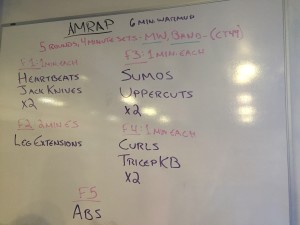 AMRAP 6 MIN WARMUP
5 ROUNDS: 4 MINUTE SETS: MW, BAND
F1: 1 MIN EACH
HEARTBEATS
JACK KNIVES
X2
F2: 2 MINES
LEG EXTENSIONS
F3: 1 MIN EACH
SUMOS
UPPERCUTS
X2
F4: 1 MIN EACH
CURLS
TRICEP KB
X2
F5
ABS